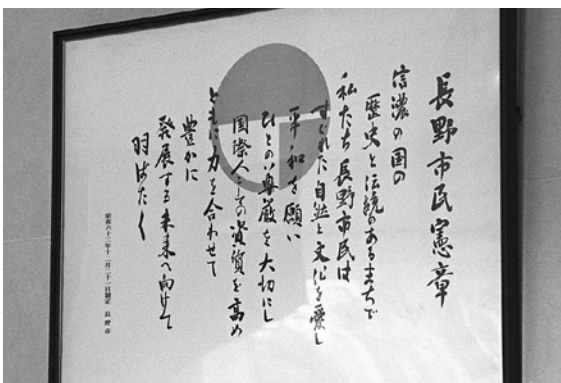 長野市民憲章
信濃の国の
歴史と伝統のあるまちで
私たち長野市民は
すぐれた自然と文化を愛し
平和を願い
ひとの尊厳を大切にし
国際人としての資質を高め
ともに力を合わせて
豊かに
発展する未来へ向けて
羽ばたく
昭和六十二年十一月二十一日制定 長野市